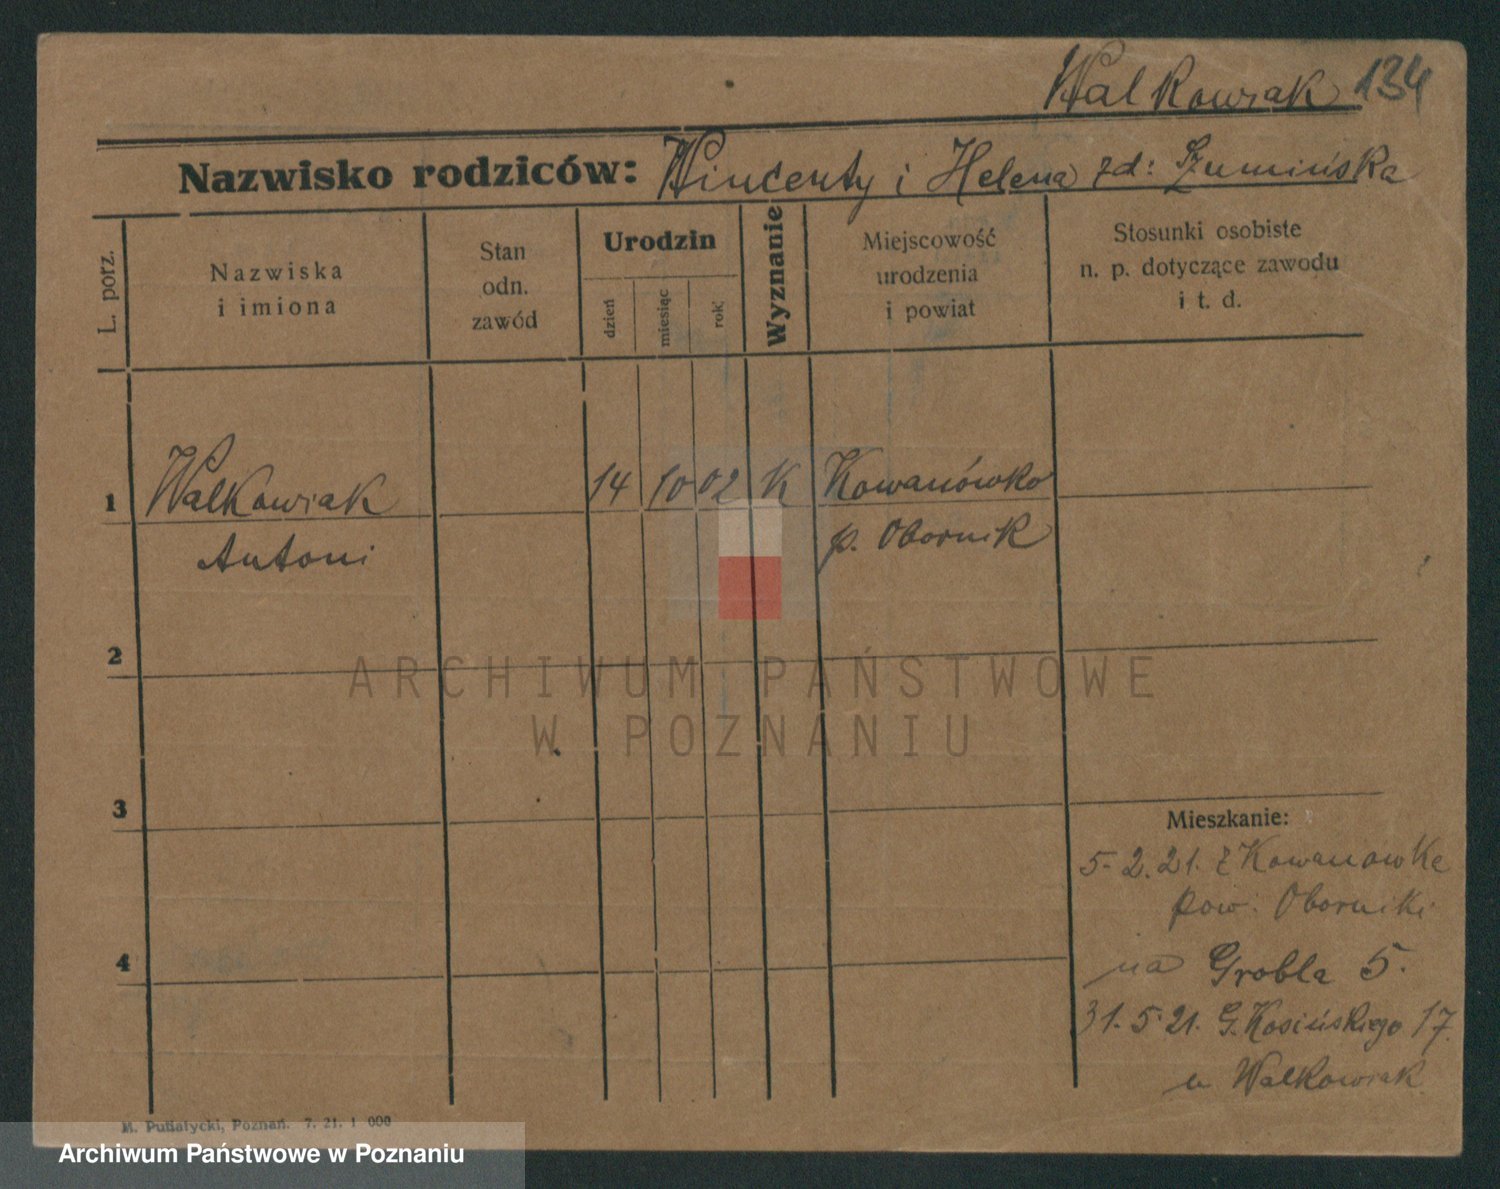 Walkowiak 134
Nazwisko rodziców: Wincenty i Helena zd: Szumińska
L. porz.
Nazwiska
i imiona
Stan
odn.
zawód
Urodzin
dzień
miesiąc
rok
Wyznanie
Miejscowość
urodzenia
i powiat
Stosunki osobiste
n. p. dotyczące zawodu
i t. d.
1 Walkowiak 14 10 02 K Kowanówko
Antoni p. Obornik
2
ARCHIWUM PAŃSTWOWE
W POZNANIU
3
Mieszkanie:
5-2.21. z Kowanowka
pow. Oborniki
4
na Grobla 5.
31.5.21. G. Kosińskiego 17.
u Walkowiak
M. Putiatycki, Poznań. 7. 21. 1 000
Archiwum Państwowe w Poznaniu